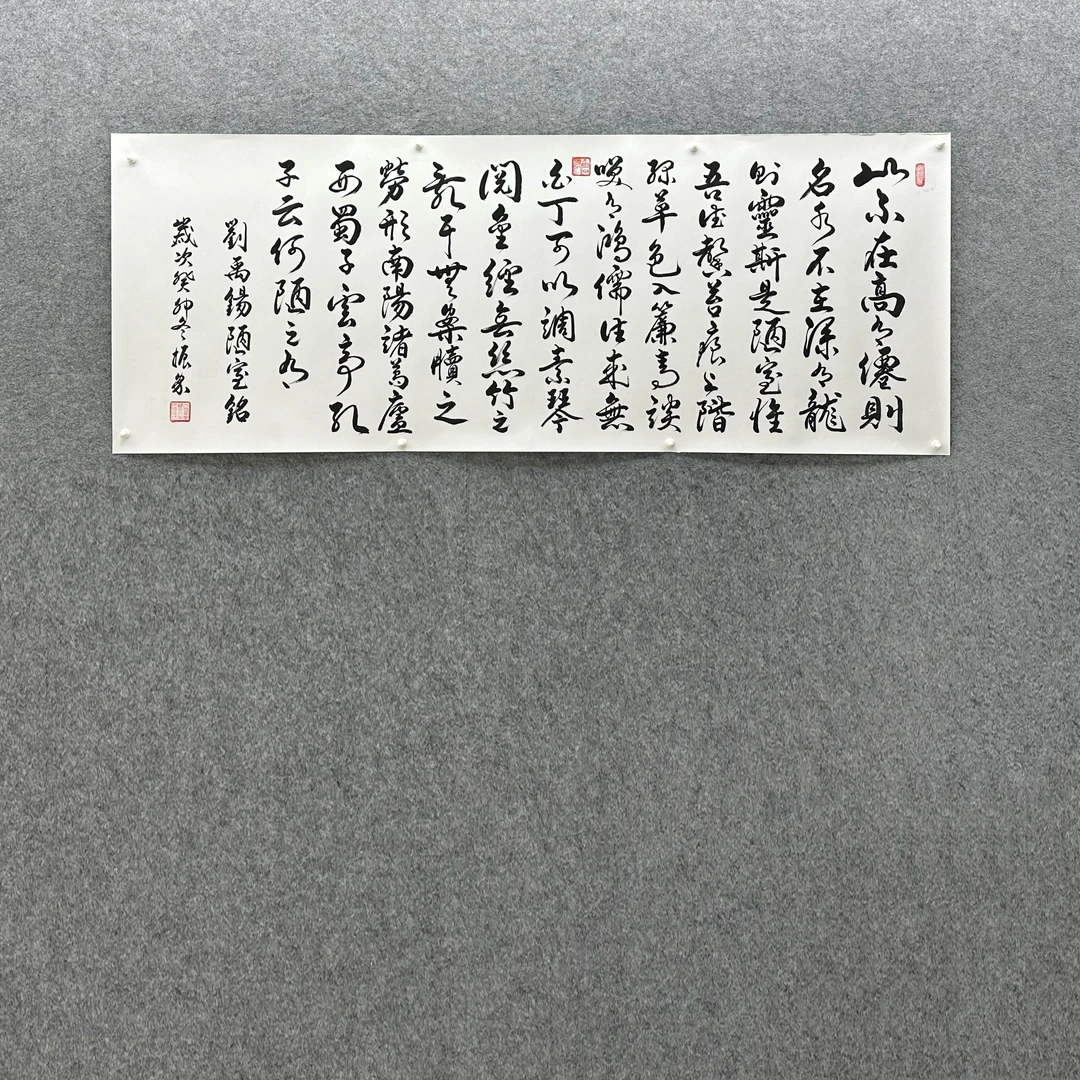 山不在高有僊則
名水不在深有龍
則靈斯是陋室惟
吾德馨苔痕上階
綠草色入簾青談
咲有鴻儒往來無
白丁可以調素琴
閱金經無絲竹之
亂耳無案牘之
勞形南陽諸葛廬
西蜀子雲亭孔
子云何陋之有
劉禹錫陋室銘
歲次癸卯冬振泉